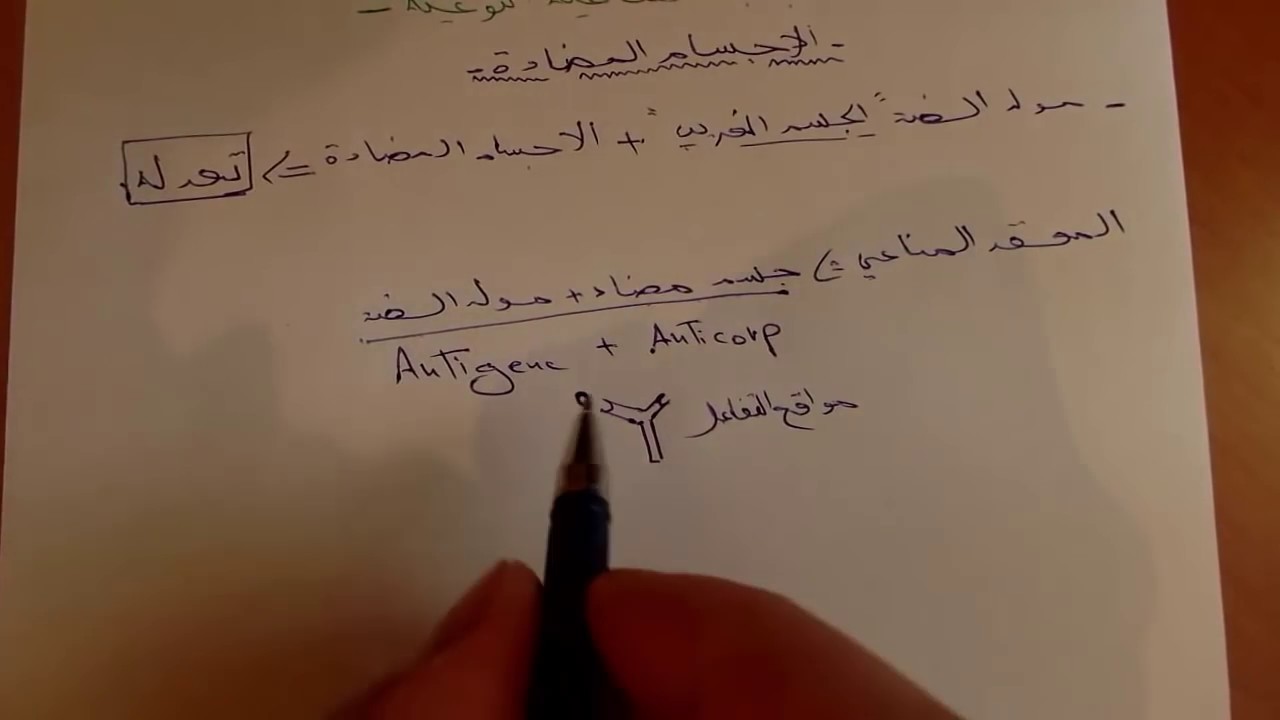 نوعية -
- الاجسام المضادة -
- مولد الضد "الجسم الغريب" + الاجسام المضادة => تعدله
المعقد المناعي => جسم مضاد + مولد الضد
Antigene + Anticorp
مواقع التفاعل